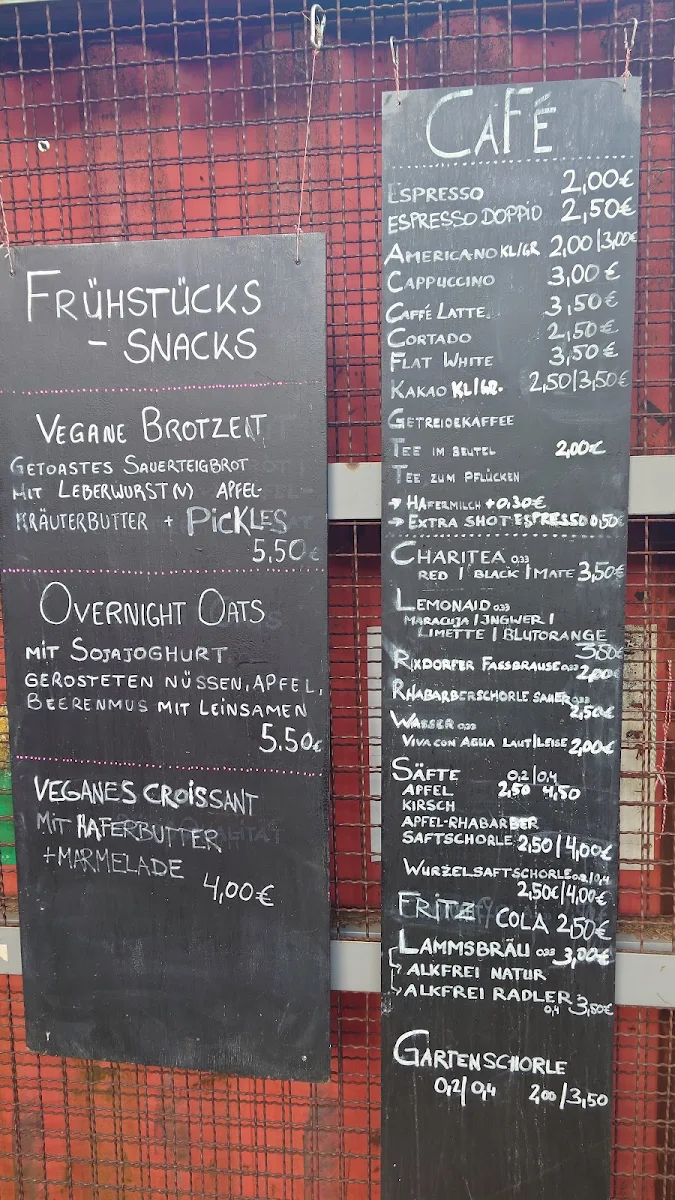 FRÜHSTÜCKS
- SNACKS
VEGANE BROTZEIT
GETOASTES SAUERTEIGBROT
MIT LEBERWURST(V) APFEL-
KRÄUTERBUTTER + PICKLES
5,50€
OVERNIGHT OATS
MIT SOJAJOGHURT
GERÖSTETEN NÜSSEN, APFEL,
BEERENMUS MIT LEINSAMEN
5,50€
VEGANES CROISSANT
MIT HAFERBUTTER
+MARMELADE
4,00€
CAFÉ
ESPRESSO 2,00€
ESPRESSO DOPPIO 2,50€
AMERICANO KL/GR 2,00|3,00€
CAPPUCCINO 3,00€
CAFFÉ LATTE 3,50€
CORTADO 2,50€
FLAT WHITE 3,50€
KAKAO KL/GR. 2,50|3,50€
GETREIDEKAFFEE
TEE IM BEUTEL 2,00€
TEE ZUM PFLÜCKEN
→ HAFERMILCH +0,30€
→ EXTRA SHOT ESPRESSO 0,50€
CHARITEA 0,33
RED | BLACK | MATE 3,50€
LEMONAID 0,33
MARACUJA | INGWER |
LIMETTE | BLUTORANGE
RIXDORFER FASSBRAUSE 0,33 2,00€
RHABARBERSCHORLE SAUER 0,33
2,50€
WASSER 0,33
VIVA CON AGUA LAUT|LEISE 2,00€
SÄFTE 0,2|0,4
APFEL 2,50 4,50
KIRSCH
APFEL-RHABARBER
SAFTSCHORLE 2,50|4,00€
WURZELSAFTSCHORLE 0,2|0,4
2,50€|4,00€
FRITZ COLA 2,50€
LAMMSBRÄU 0,33 3,00€
→ ALKFREI NATUR
→ ALKFREI RADLER
0,4 3,50€
GARTENSCHORLE
0,2|0,4 2,00|3,50